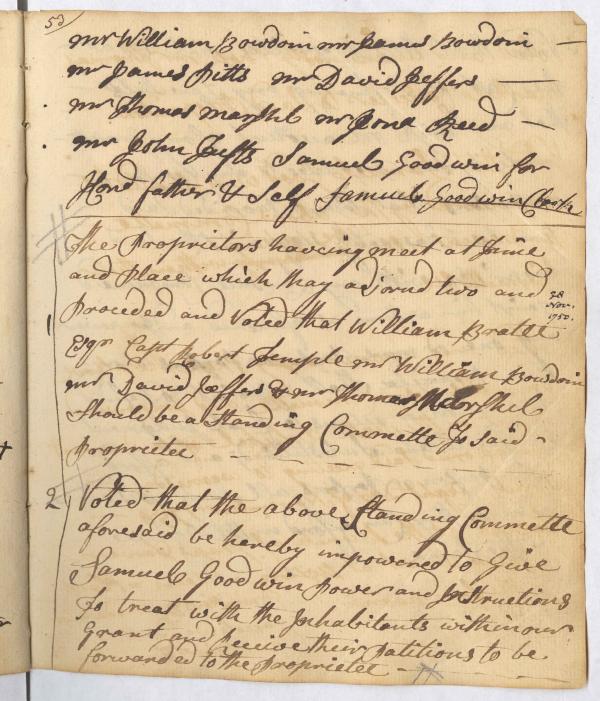 53
mr William Bowdoin mr James Bowdoin —
mr James Pitts mr David Jeffers —
mr Thomas marshl mr Jona Reed —
mr John Tufts Samuel Goodwin for
Hond father & Self Samuel Goodwin Clark
The Proprietors haveing meet at Time
and Place which thay adjornd two and
28
Nov.
1750.
Proceded and Voted that William Bratle
Esqr Capt Robert Temple mr William Bowdoin
mr David Jeffers & mr Thomas Marshel
Should be a Standing Commette To said
Proprietee —
2 Voted that the above Standing Commette
aforesaid be hereby impowered to Give
Samuel Goodwin Power and Instructions
To treat with the Inhabitants within our
Grant and Receive their Patitions to be
forwarded to the Proprietee —